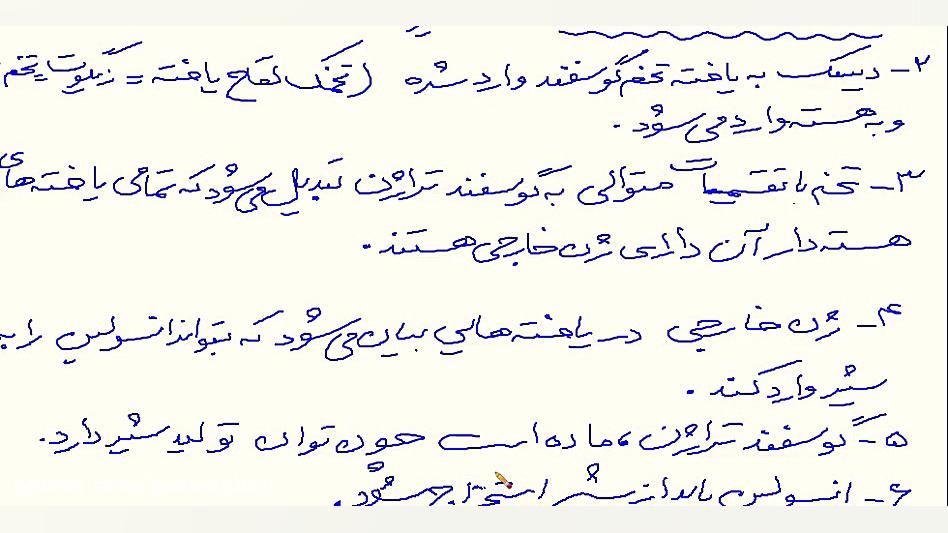 ۲- دیسک به یاخته تخم گوسفند وارد شده (تخمک لقاح یافته = زیگوت = تخم
و به هسته وارد می‌شود.
۳- تخم با تقسیمات متوالی به گوسفند تراژن تبدیل می‌شود که تمامی یاخته‌های
هسته‌دار آن دارای ژن خارجی هستند.
۴- ژن خارجی در یاخته‌هایی بیان می‌شود که بتواند انسولین را به
شیر وارد کند.
۵- گوسفند تراژن، ماده است چون توان تولید شیر دارد.
۶- انسولین باید از شیر استخراج شود.